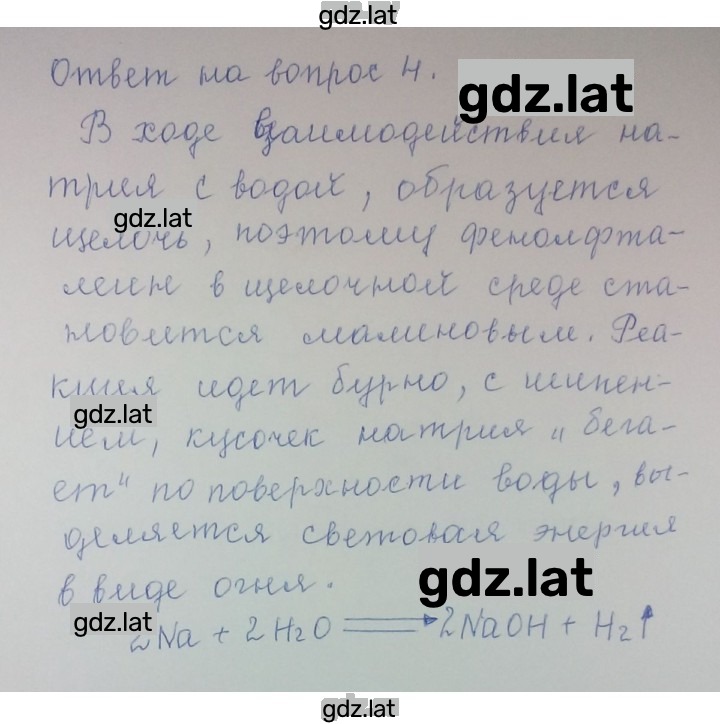 gdz.lat
Ответ на вопрос 4.
gdz.lat
В ходе взаимодействия на-
трия с водой, образуется
gdz.lat
щелочь, поэтому фенолфта-
леин в щелочной среде ста-
новится малиновым. Реа-
кция идет бурно, с шипен-
gdz.lat
ием, кусочек натрия „бега-
ет“ по поверхности воды, вы-
деляется световая энергия
в виде огня.
gdz.lat
gdz.lat
2Na + 2H₂O ⟹ 2NaOH + H₂↑
gdz.lat